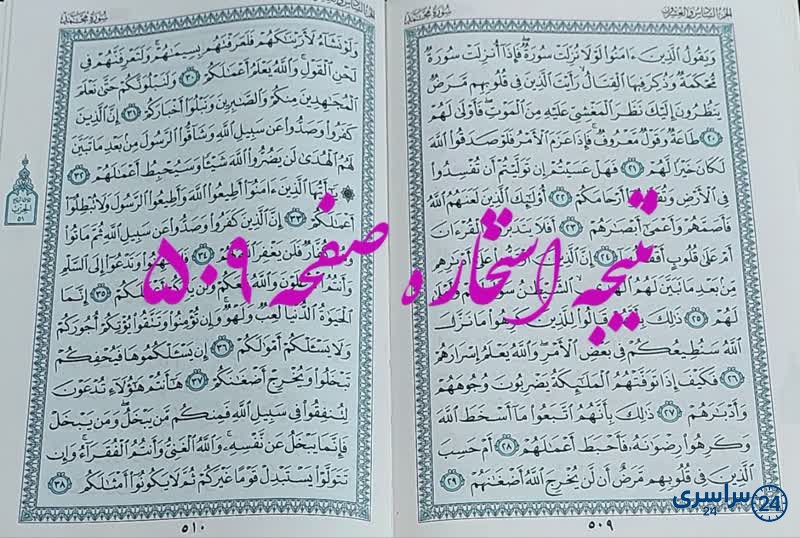 الجزء السادس والعشرون
سورة محمد
وَيَقُولُ الَّذِينَ ءَامَنُوا لَوْلَا نُزِّلَتْ سُورَةٌ فَإِذَا أُنزِلَتْ سُورَةٌ
مُّحْكَمَةٌ وَذُكِرَ فِيهَا الْقِتَالُ رَأَيْتَ الَّذِينَ فِي قُلُوبِهِم مَّرَضٌ
يَنظُرُونَ إِلَيْكَ نَظَرَ الْمَغْشِيِّ عَلَيْهِ مِنَ الْمَوْتِ فَأَوْلَى لَهُمْ
٢٠ طَاعَةٌ وَقَوْلٌ مَّعْرُوفٌ فَإِذَا عَزَمَ الْأَمْرُ فَلَوْ صَدَقُوا اللَّهَ
لَكَانَ خَيْرًا لَّهُمْ ٢١ فَهَلْ عَسَيْتُمْ إِن تَوَلَّيْتُمْ أَن تُفْسِدُوا
فِي الْأَرْضِ أَرْحَامَكُمْ ٢٢ أُولَٰئِكَ الَّذِينَ لَعَنَهُمُ اللَّهُ
فَأَصَمَّهُمْ وَأَعْمَىٰ أَبْصَارَهُمْ ٢٣ أَفَلَا الْقُرْءَانَ
أَمْ عَلَىٰ قُلُوبٍ ٢٤ إِنَّ الَّذِينَ عَلَىٰ أَدْبَارِهِم
مِّن بَعْدِ مَا تَبَيَّنَ لَهُمُ الشَّيْطَانُ
لَهُمْ ٢٥ ذَٰلِكَ قَالُوا لِلَّذِينَ مَا نَزَّلَ
اللَّهُ سَنُطِيعُكُمْ فِي بَعْضِ الْأَمْرِ وَاللَّهُ يَعْلَمُ إِسْرَارَهُمْ
٢٦ فَكَيْفَ إِذَا تَوَفَّتْهُمُ الْمَلَٰئِكَةُ يَضْرِبُونَ وُجُوهَهُمْ
وَأَدْبَارَهُمْ ٢٧ ذَٰلِكَ بِأَنَّهُمُ اتَّبَعُوا مَا أَسْخَطَ اللَّهَ
وَكَرِهُوا رِضْوَانَهُ فَأَحْبَطَ أَعْمَالَهُمْ ٢٨ أَمْ حَسِبَ
الَّذِينَ فِي قُلُوبِهِم مَّرَضٌ أَن لَّن يُخْرِجَ اللَّهُ أَضْغَانَهُمْ ٢٩
٥٠٩
الجزء السادس والعشرون
سورة محمد
وَلَوْ نَشَاءُ لَأَرَيْنَاكَهُمْ فَلَعَرَفْتَهُم بِسِيمَاهُمْ وَلَتَعْرِفَنَّهُمْ فِي
لَحْنِ الْقَوْلِ وَاللَّهُ يَعْلَمُ أَعْمَالَكُمْ ٣٠ وَلَنَبْلُوَنَّكُمْ حَتَّىٰ نَعْلَمَ
الْمُجَاهِدِينَ مِنكُمْ وَالصَّابِرِينَ وَنَبْلُوَا أَخْبَارَكُمْ ٣١ إِنَّ الَّذِينَ
كَفَرُوا وَصَدُّوا عَن سَبِيلِ اللَّهِ وَشَاقُّوا الرَّسُولَ مِن بَعْدِ مَا تَبَيَّنَ
لَهُمُ الْهُدَىٰ لَن يَضُرُّوا اللَّهَ شَيْئًا وَسَيُحْبِطُ أَعْمَالَهُمْ ٣٢
۞ يَا أَيُّهَا الَّذِينَ ءَامَنُوا أَطِيعُوا اللَّهَ وَأَطِيعُوا الرَّسُولَ وَلَا تُبْطِلُوا
أَعْمَالَكُمْ ٣٣ إِنَّ الَّذِينَ كَفَرُوا وَصَدُّوا عَن سَبِيلِ اللَّهِ ثُمَّ مَاتُوا
كُفَّارٌ فَلَن يَغْفِرَ اللَّهُ ٣٤ وَتَدْعُوا إِلَى السَّلْمِ
وَأَنتُمُ وَاللَّهُ مَعَكُمْ وَلَن أَعْمَالَكُمْ ٣٥ إِنَّمَا
الْحَيَوٰةُ الدُّنْيَا لَعِبٌ وَلَهْوٌ وَإِن تُؤْمِنُوا وَتَتَّقُوا يُؤْتِكُمْ أُجُورَكُمْ
وَلَا يَسْئَلْكُمْ أَمْوَالَكُمْ ٣٦ إِن يَسْئَلْكُمُوهَا فَيُحْفِكُمْ
تَبْخَلُوا وَيُخْرِجْ أَضْغَانَكُمْ ٣٧ هَا أَنتُمْ هَٰؤُلَاءِ تُدْعَوْنَ
لِتُنفِقُوا فِي سَبِيلِ اللَّهِ فَمِنكُم مَّن يَبْخَلُ وَمَن يَبْخَلْ
فَإِنَّمَا يَبْخَلُ عَن نَّفْسِهِ وَاللَّهُ الْغَنِيُّ وَأَنتُمُ الْفُقَرَاءُ وَإِن
تَتَوَلَّوْا يَسْتَبْدِلْ قَوْمًا غَيْرَكُمْ ثُمَّ لَا يَكُونُوا أَمْثَالَكُم ٣٨
٥١٠
الحزب
٥١
نتیجه استخاره صفحه ۵۰۹
سراسری
24
24